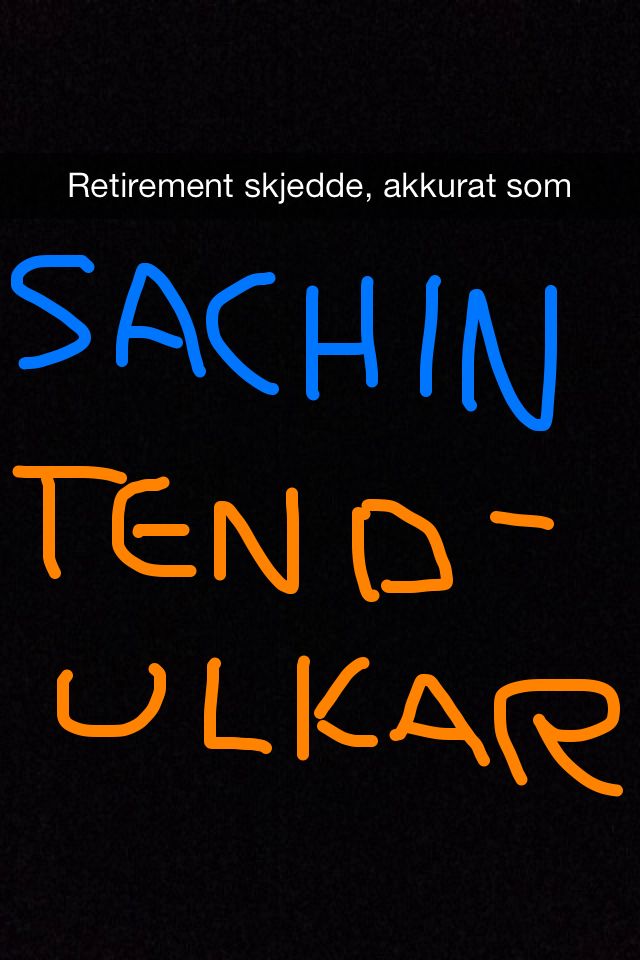 Retirement skjedde, akkurat som
SACHIN
TEND-
ULKAR